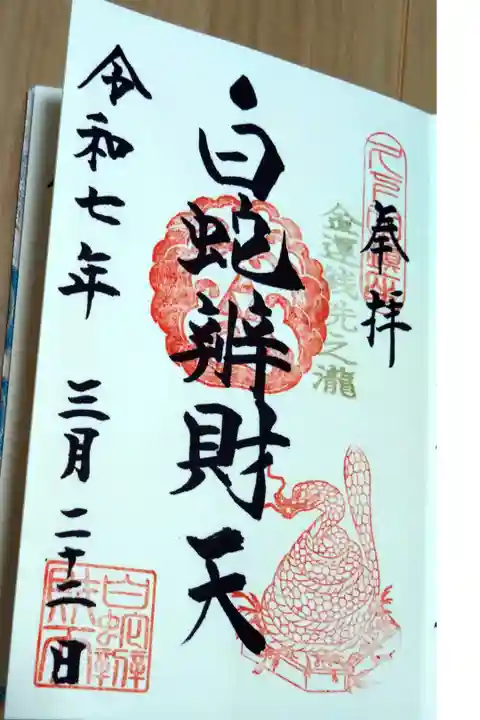 奉拝
金運銭洗之瀧
白蛇辨財天
令和七年 三月二十二日
白蛇辨財天